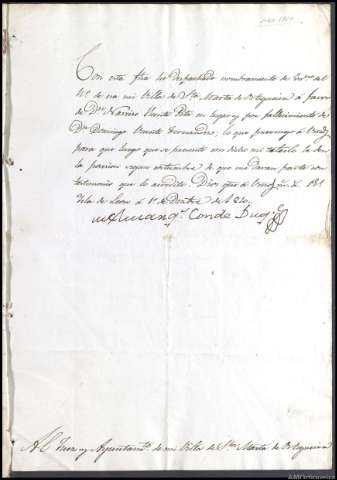 Con esta fha he despachado nombramiento de Esc.no del
N.o de esa mi Villa de S.ta Marta de Ortigueira á favor
de D.n Ramiro Vicente Pita en lugar y por fallecimiento de
D.n Domingo Vicente Fernandez, lo que prevengo á
para que luego que se presente con dicho mi titulo le den
la posesion segun costumbre de que me daran parte con
testimonio que lo acredite. Dios gue á
Isla de Leon á 1.o de de 1810.
Conde Duq.e
Al Juez y Ayuntam.to de mi Villa de S.ta Marta de Ortigueira
AMOrtigueira